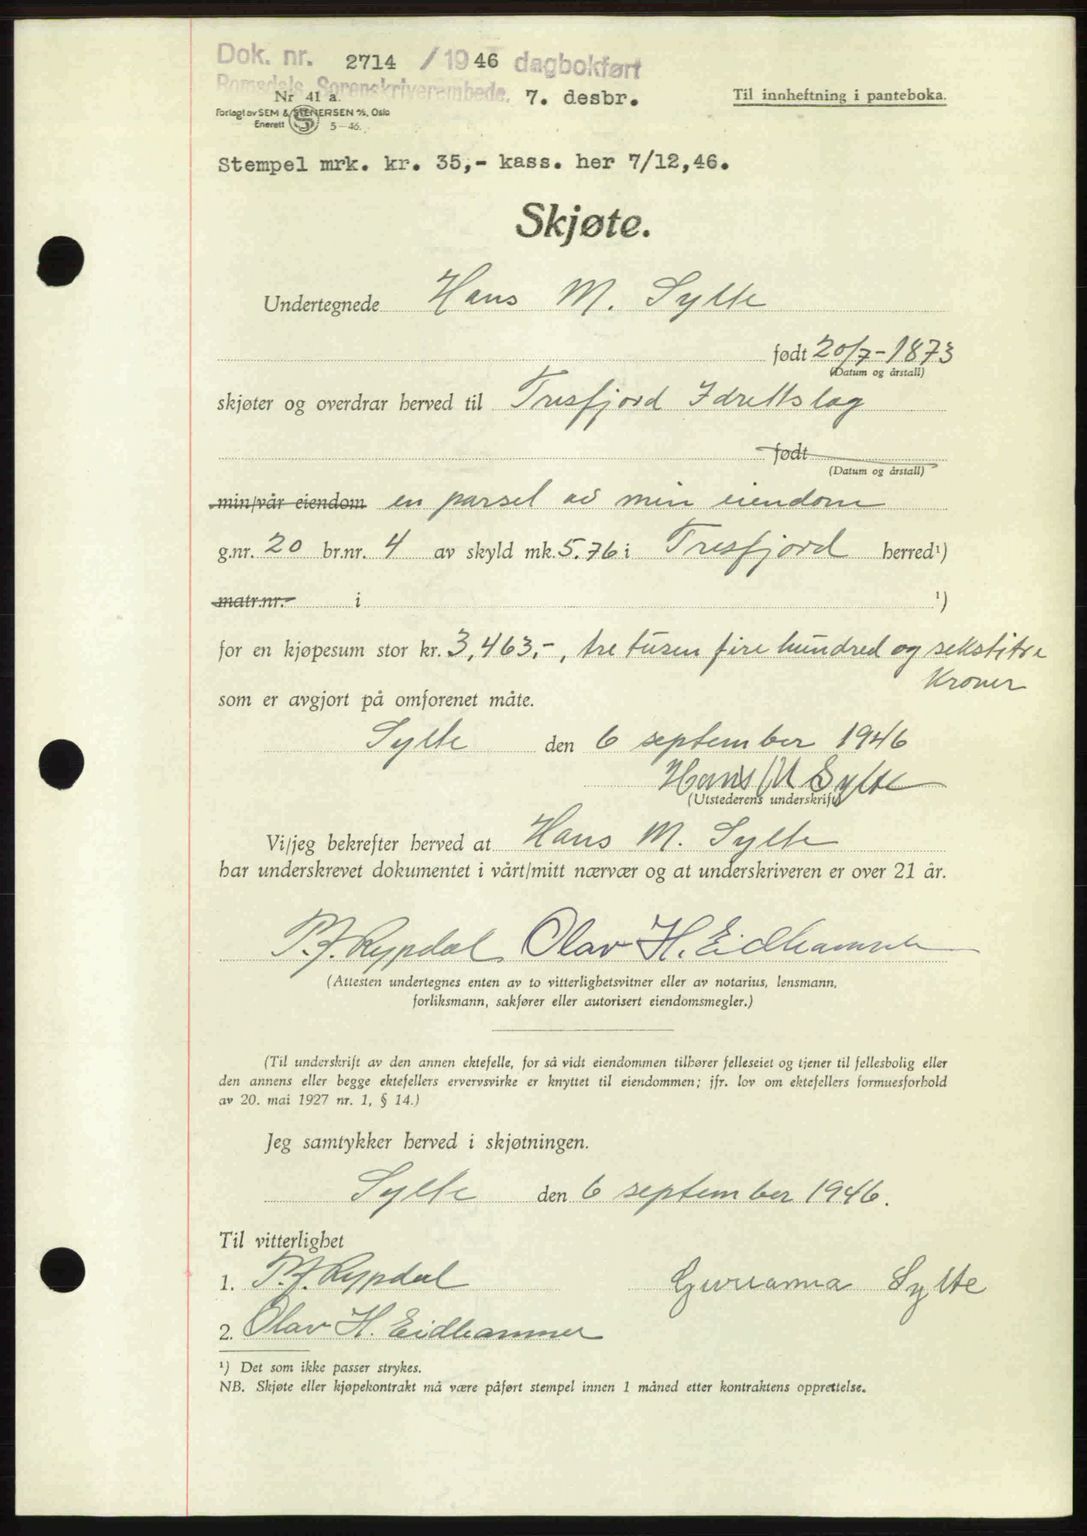 Dok. nr. 2714 / 1946 dagbokført
Romsdals Sorenskriverembede. 7. desbr.
Nr 41 a.
Forlagt av SEM & STENERSEN A/S, Oslo
Enerett S 5—46.
Til innheftning i panteboka.
Stempel mrk. kr. 35,- kass. her 7/12,46.
Skjøte.
Undertegnede Hans M. Sylte
født 20/7-1873
(Datum og årstall)
skjøter og overdrar herved til Tresfjord Idrettslag
født
(Datum og årstall)
min/vår eiendom en parsel av min eiendom
g.nr. 20 br.nr. 4 av skyld mk. 5.76 i Tresfjord herred¹)
matr.nr. i ¹)
for en kjøpesum stor kr. 3,463,-, tre tusen fire hundred og sekstitre
Kroner
som er avgjort på omforenet måte.
Sylte den 6 september 1946
Hans M Sylte
(Utstederens underskrift)
Vi/jeg bekrefter herved at Hans M. Sylte
har underskrevet dokumentet i vårt/mitt nærvær og at underskriveren er over 21 år.
P. J. Rypdal Olav H. Eidhammer
(Attesten undertegnes enten av to vitterlighetsvitner eller av notarius, lensmann,
forliksmann, sakfører eller autorisert eiendomsmegler.)
(Til underskrift av den annen ektefelle, for så vidt eiendommen tilhører felleseiet og tjener til fellesbolig eller
den annens eller begge ektefellers ervervsvirke er knyttet til eiendommen; jfr. lov om ektefellers formuesforhold
av 20. mai 1927 nr. 1, § 14.)
Jeg samtykker herved i skjøtningen.
Sylte den 6 september 1946.
Til vitterlighet
1. P. J. Rypdal Gurianna Sylte
2. Olav H. Eidhammer
¹) Det som ikke passer strykes.
NB. Skjøte eller kjøpekontrakt må være påført stempel innen 1 måned etter kontraktens opprettelse.